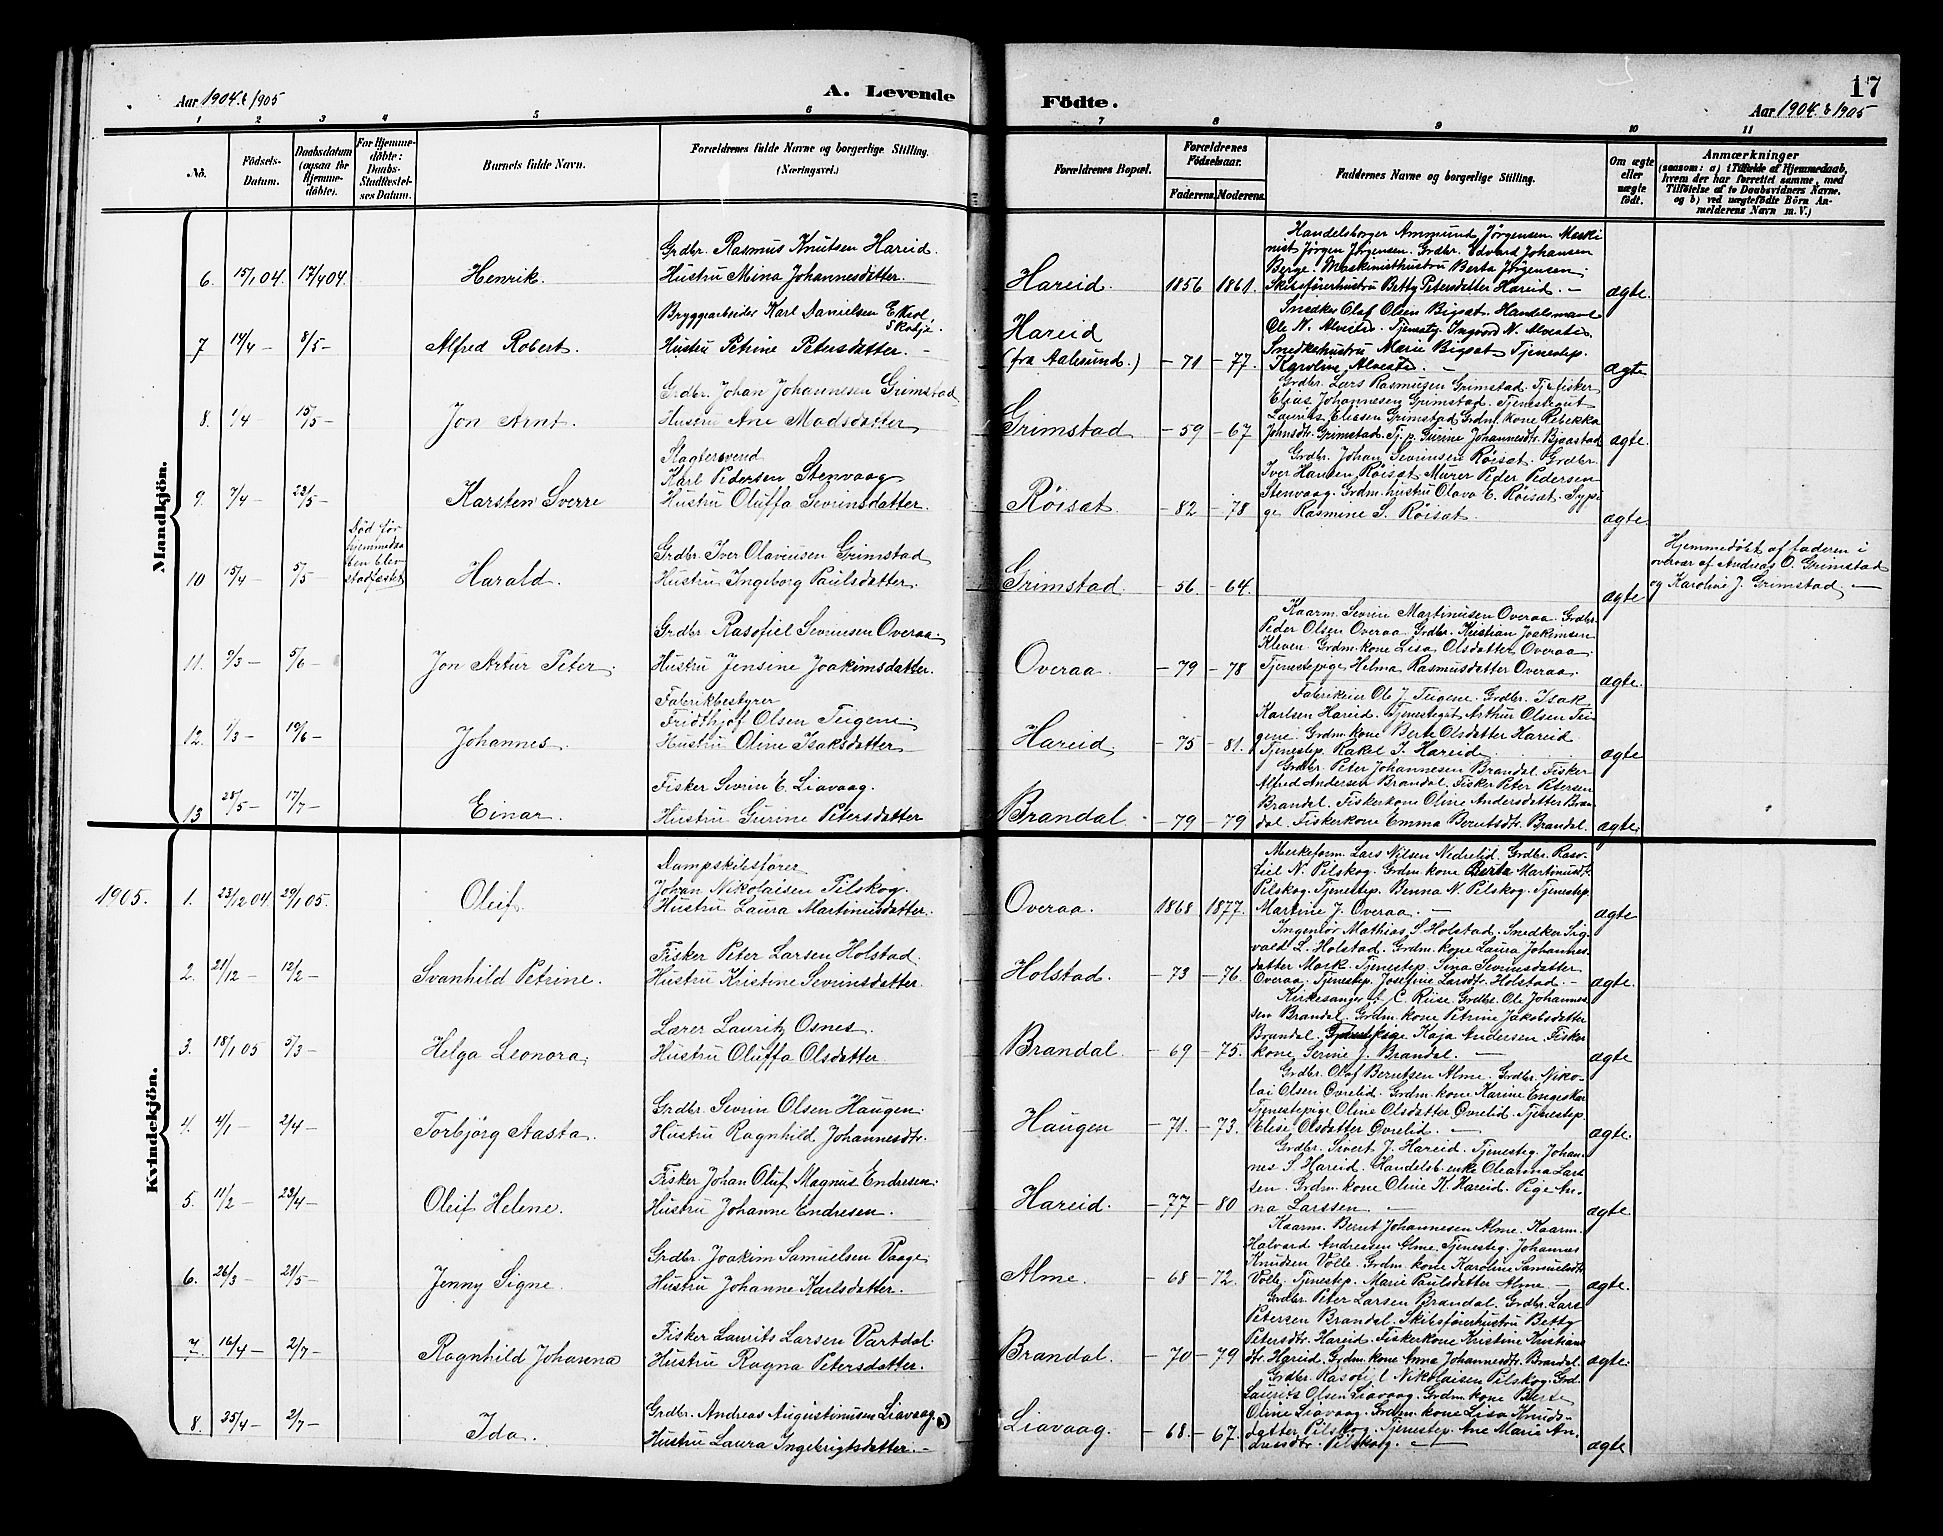 Aar 1904 & 1905
A. Levende
Födte.
17
Aar 1904 & 1905
1 2 3 4 5 6 7 8 9 10 11
No.
Födsels-
Datum.
Daabsdatum
(ogsaa for
Hjemme-
döbte).
For Hjemme-
döbte:
Daabs-
Stadfæstel-
ses Datum.
Barnets fulde Navn.
Forældrenes fulde Navne og borgerlige Stilling.
(Næringsvei.)
Forældrenes Bopæl.
Forældrenes
Födselsaar.
Faderens. Moderens.
Faddernes Navne og borgerlige Stilling.
Om ægte
eller
uægte
födt.
Anmærkninger
(saasom: a) i Tilfælde af Hjemmedaab,
hvem der har forrettet samme, med
Tilföielse af to Daabsvidners Navne,
og b) ved uægtefödte Börn An-
melderens Navn m. V.)
Mandkjön.
6. 15/1 04. 17/4 04. Henrik.
Grdbr. Rasmus Knutsen Hareid.
Hustru Mina Johannesdatter.
Hareid. 1856 1861.
Handelsborger Ammund Jørgensen. Maski
nist Jørgen Jørgensen. Grdbr. Edvard Johansen
Berge. Maskinisthustru Berta Jørgensen.
Skibsførerhustru Betty Petersdatter Hareid. —
ægte.
7 14/4 — 8/5 — Alfred Robert.
Bryggearbeider Karl Danielsen Ekrol,
Skodje.
Hustru Petrine Petersdatter. —
Hareid
(fra Aalesund.) — 71 — 77.
Snedker Olof Olsen Bigset. Handelsmand
Ole N. Alveste. Tjenestg. Ingvard N. Alveste.
Snedkehustru Marie Bigset. Tjenestep.
Karoline Alveste. —
ægte
8. 1/4 15/5 — Jon Arnt.
Grdbr. Johan Johannesen Grimstad
Hustru Ane Madsdatter
Grimstad — 59 — 67
Grdbr. Lars Rasmusen Grimstad. Tje fisker
Elias Johannesen Grimstad. Tjenestegut
Laurits Eliesen Grimstad Grdm. kone Rebekka
Johnsdtr. Grimstad. Tj. p. Gurine Johannesdtr. Bjaastad
ægte.
9. 7/4 — 23/5 — Karsten Sverre
Slagtersvend
Karl Pedersen Stenvaag
Hustru Oluffa Sevrinsdatter.
Röisat. — 82 — 78
Grdbr. Johan Sevrinsen Röisat. Grdbr.
Iver Hansen Röisat. Murer Peder Pedersen
Stenvaag. Grdm. hustru Olava E. Röisat. Sypi
ge Rasmine S. Röisat.
ægte
10 15/4 — 5/5 —
Död før
hjemmedaa
ben blev
stadfæstet
Harald.
Grdbr. Iver Olaviusen Grimstad
Hustru Ingeborg Paulsdatter.
Grimstad. — 56 — 64.
ægte
Hjemmedöbt af faderen i
overvær af Andreas O. Grimstad
og Karoline J. Grimstad —
11. 9/3 — 5/6 — Jon Artur Peter.
Grdbr. Rasofiel Sevrinsen Overaa.
Hustru Jensine Joakimsdatter.
Overaa. — 79 — 78
Kaarm. Sevrin Martinusen Overaa Grdbr.
Peder Olsen Overaa. Grdbr. Kristian Joakimsen
Kleven. Grdm. kone Lisa Olsdatter Overaa.
Tjenestepige Helma Rasmusdatter Overaa.
ægte.
12. 1/3 — 19/6 — Johannes.
Fabrikbestyrer
Fridthjof Olsen Teigene.
Hustru Oline Isaksdatter
Hareid — 75 — 81.
Fabrikeier Ole J. Teigene. Grdbr. Isak
Karlsen Hareid. Tjenestegut Arthur Olsen Tei
gene. Grdm. kone Berte Olsdatter Hareid
Tjenestep. Rakel I. Hareid.
ægte
13 28/5 — 17/7 — Einar.
Fisker Sevrin E. Liavaag.
Hustru Gurine Petersdatter
Brandal. — 79 — 79
Grdbr. Peter Johannesen Brandal. Fisker
Alfred Andersen Brandal. Fisker Peter Petersen
Brandal. Fiskerkone Oline Andersdatter Bran-
dal. Fiskerkone Emma Berntsdtr. Brandal.
ægte.
1905.
Kvindekjön.
1. 23/12 04. 29/1 05. Oleif.
Dampskibsfører
Johan Nikolaisen Pilskog.
Hustru Laura Martinusdatter.
Overaa. 1868 1877.
Merkeform. Lars Nilsen Nedrelid. Grdbr. Raso-
fiel N. Pilskog. Grdm. kone Berta Martinusdtr.
Pilskog. Tjenestep. Benna N. Pilskog. Tjenestep
Martine J. Overaa. —
ægte
2. 21/12 — 12/2 — Svanhild Petrine.
Fisker Peter Larsen Holstad.
Hustru Kristine Sevrinsdatter.
Holstad. — 73 — 76.
Ingeniör Mathias S. Holstad. Snedker Sig-
vald L. Holstad. Grdm. kone Laura Johannes-
datter Mork. Tjenestep. Sina Sevrinsdatter
Overaa. Tjenestep. Josefine Larsdtr. Holstad. —
ægte.
3. 18/1 05 5/3 — Helga Leonora.
Lærer Lauritz Osnes.
Hustru Oluffa Olsdatter.
Brandal. — 69 — 75.
Kirkesanger C. Riise. Grdbr. Ole Johannes
sen Brandal. Grdm. kone Petrine Jakobsdatter
Brandal. Kaja Andersen. Fisker
kone, Serine J. Brandal. —
ægte
4. 4/1 — 2/4 — Torbjörg Aasta.
Grdbr. Sevrin Olsen Haugen.
Hustru Ragnhild Johannesdtr.
Haugen — 71. — 73.
Grdbr. Olaf Berntsen Alme. Grdbr. Niko-
lai Olsen Øvrelid. Grdm. kone Karine Engeskar
Tjenestepige Oline Olsdatter Øvrelid. Tjenestep
Elise Olsdatter Øvrelid. —
ægte.
5. 11/2 — 23/4 — Oleif Helene.
Fisker Johan Oluf Magnus Endresen.
Hustru Johanne Endresen.
Hareid. — 77 — 80
Grdbr. Sivert J. Hareid. Tjenestg. Johan-
nes S. Hareid. Handelsb. enke Oleanna Lars
sen. Grdm. kone Oline K. Hareid. Pige An-
na Larssen —
ægte
6. 26/3 — 21/5 — Jenny Signe.
Grdbr. Joakim Samuelsen Vaage
Hustru Johanne Karlsdatter.
Alme. — 68 — 72.
Kaarm. Bernt Johannesen Alme. Kaarm.
Halvard Andressen Alme. Tjenesteg. Johannes
Knudsen Volle. Grdm. kone Karoline Samuelsdtr
Volle. Tjenestep. Marie Paulsdatter Alme —
ægte.
7. 16/4 — 2/7 — Ragnhild Johanna
Fisker Laurits Larsen Vartdal.
Hustru Ragna Petersdatter.
Brandal. — 70 — 79
Grdbr. Peter Larsen Brandal. Grdbr. Lars
Petersen Brandal. Skibsførerhustru Betty
Petersdtr. Hareid. Fiskerkone Kristine Kristians
dtr. Hareid. Grdm. kone Anna Johannesdtr. Brandal
ægte.
8. 25/4 — 2/7 — Ida.
Grdbr. Andreas Augustinusen Liavaag.
Hustru Laura Ingebrigtsdatter. —
Liavaag. — 68 — 67.
Grdbr. Rasofiel Nikolaisen Pilskog. Grd.
Laurits Olsen Liavaag. Grdm. kone Berte
Oline Liavaag. Grdm. kone Lisa Knuds-
datter Pilskog. Tjenestep. Ane Marie An-
dresdtr. Pilskog. —
ægte